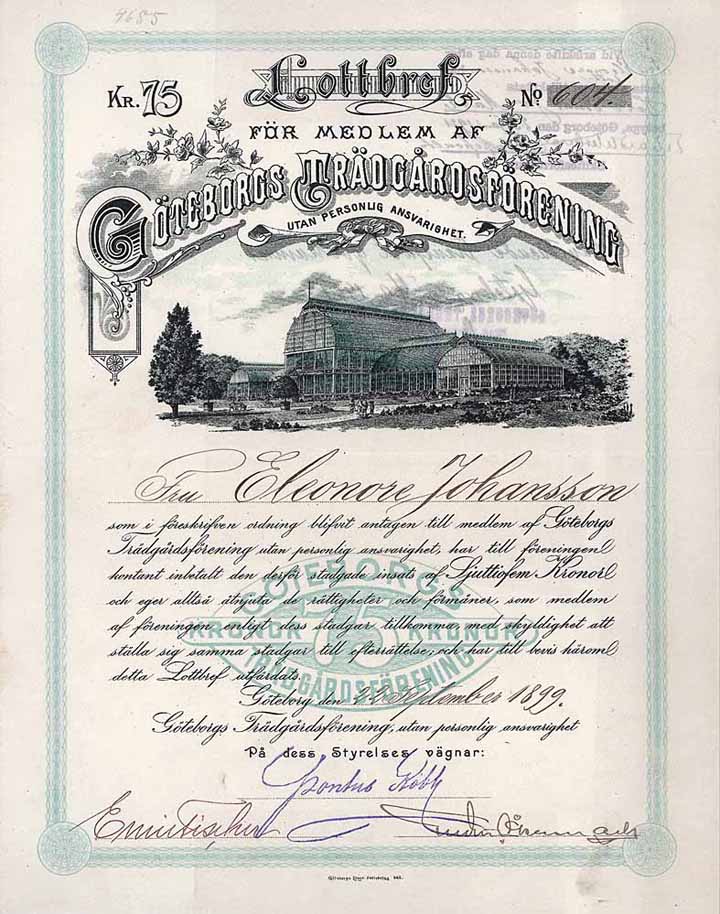 4685
Kr. 75
Lottbref
No 604.
FÖR MEDLEM AF
GÖTEBORGS TRÄDGÅRDSFÖRENING
UTAN PERSONLIG ANSVARIGHET.
Fru Eleonore Johansson
som i föreskrifven ordning blifvit antagen till medlem af Göteborgs
Trädgårdsförening utan personlig ansvarighet, har till föreningen
kontant inbetalt den derför stadgade insats af Sjuttiofem Kronor
och eger alltså åtnjuta de rättigheter och förmåner, som medlem
af föreningen enligt dess stadgar tillkomma, med skyldighet att
ställa sig samma stadgar till efterrättelse; och har till bevis härom
detta Lottbref utfärdats.
GÖTEBORGS
KRONOR 75 KRONOR
TRÄDGÅRDSFÖRENING
Göteborg den September 1899.
Göteborgs Trädgårdsförening, utan personlig ansvarighet
På dess Styrelses vägnar:
Pontus
Emil Fischer
Göteborgs